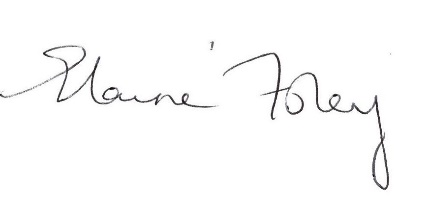 Elaine Foley